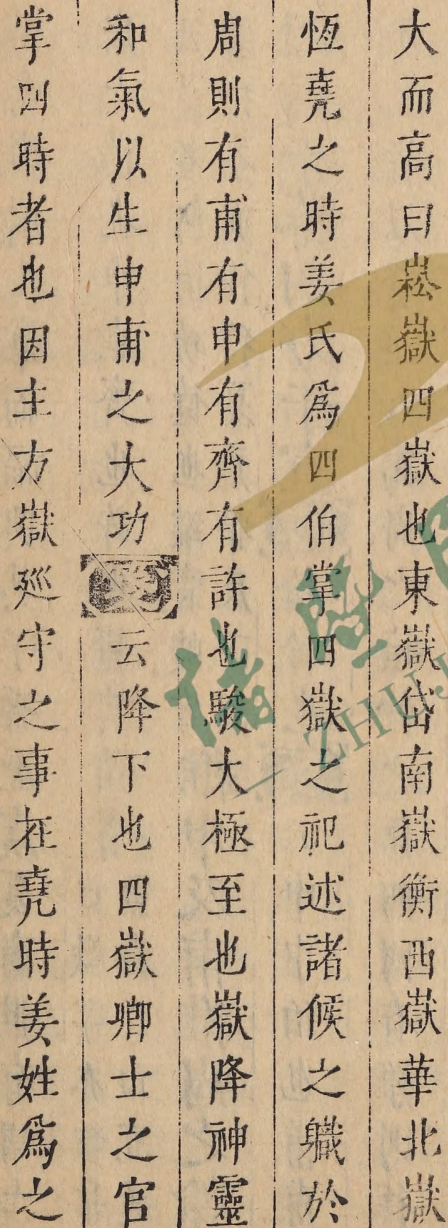 大而高曰崧嶽四嶽也東嶽岱南嶽衡西嶽華北嶽
恆堯之時姜氏爲四伯掌四嶽之祀述諸侯之職於
周則有甫有申有齊有許也駿大極至也嶽降神靈
和氣以生申甫之大功箋云降下也四嶽卿士之官
掌四時者也因主方嶽廵守之事在堯時姜姓爲之
诸暨
ZHUJ